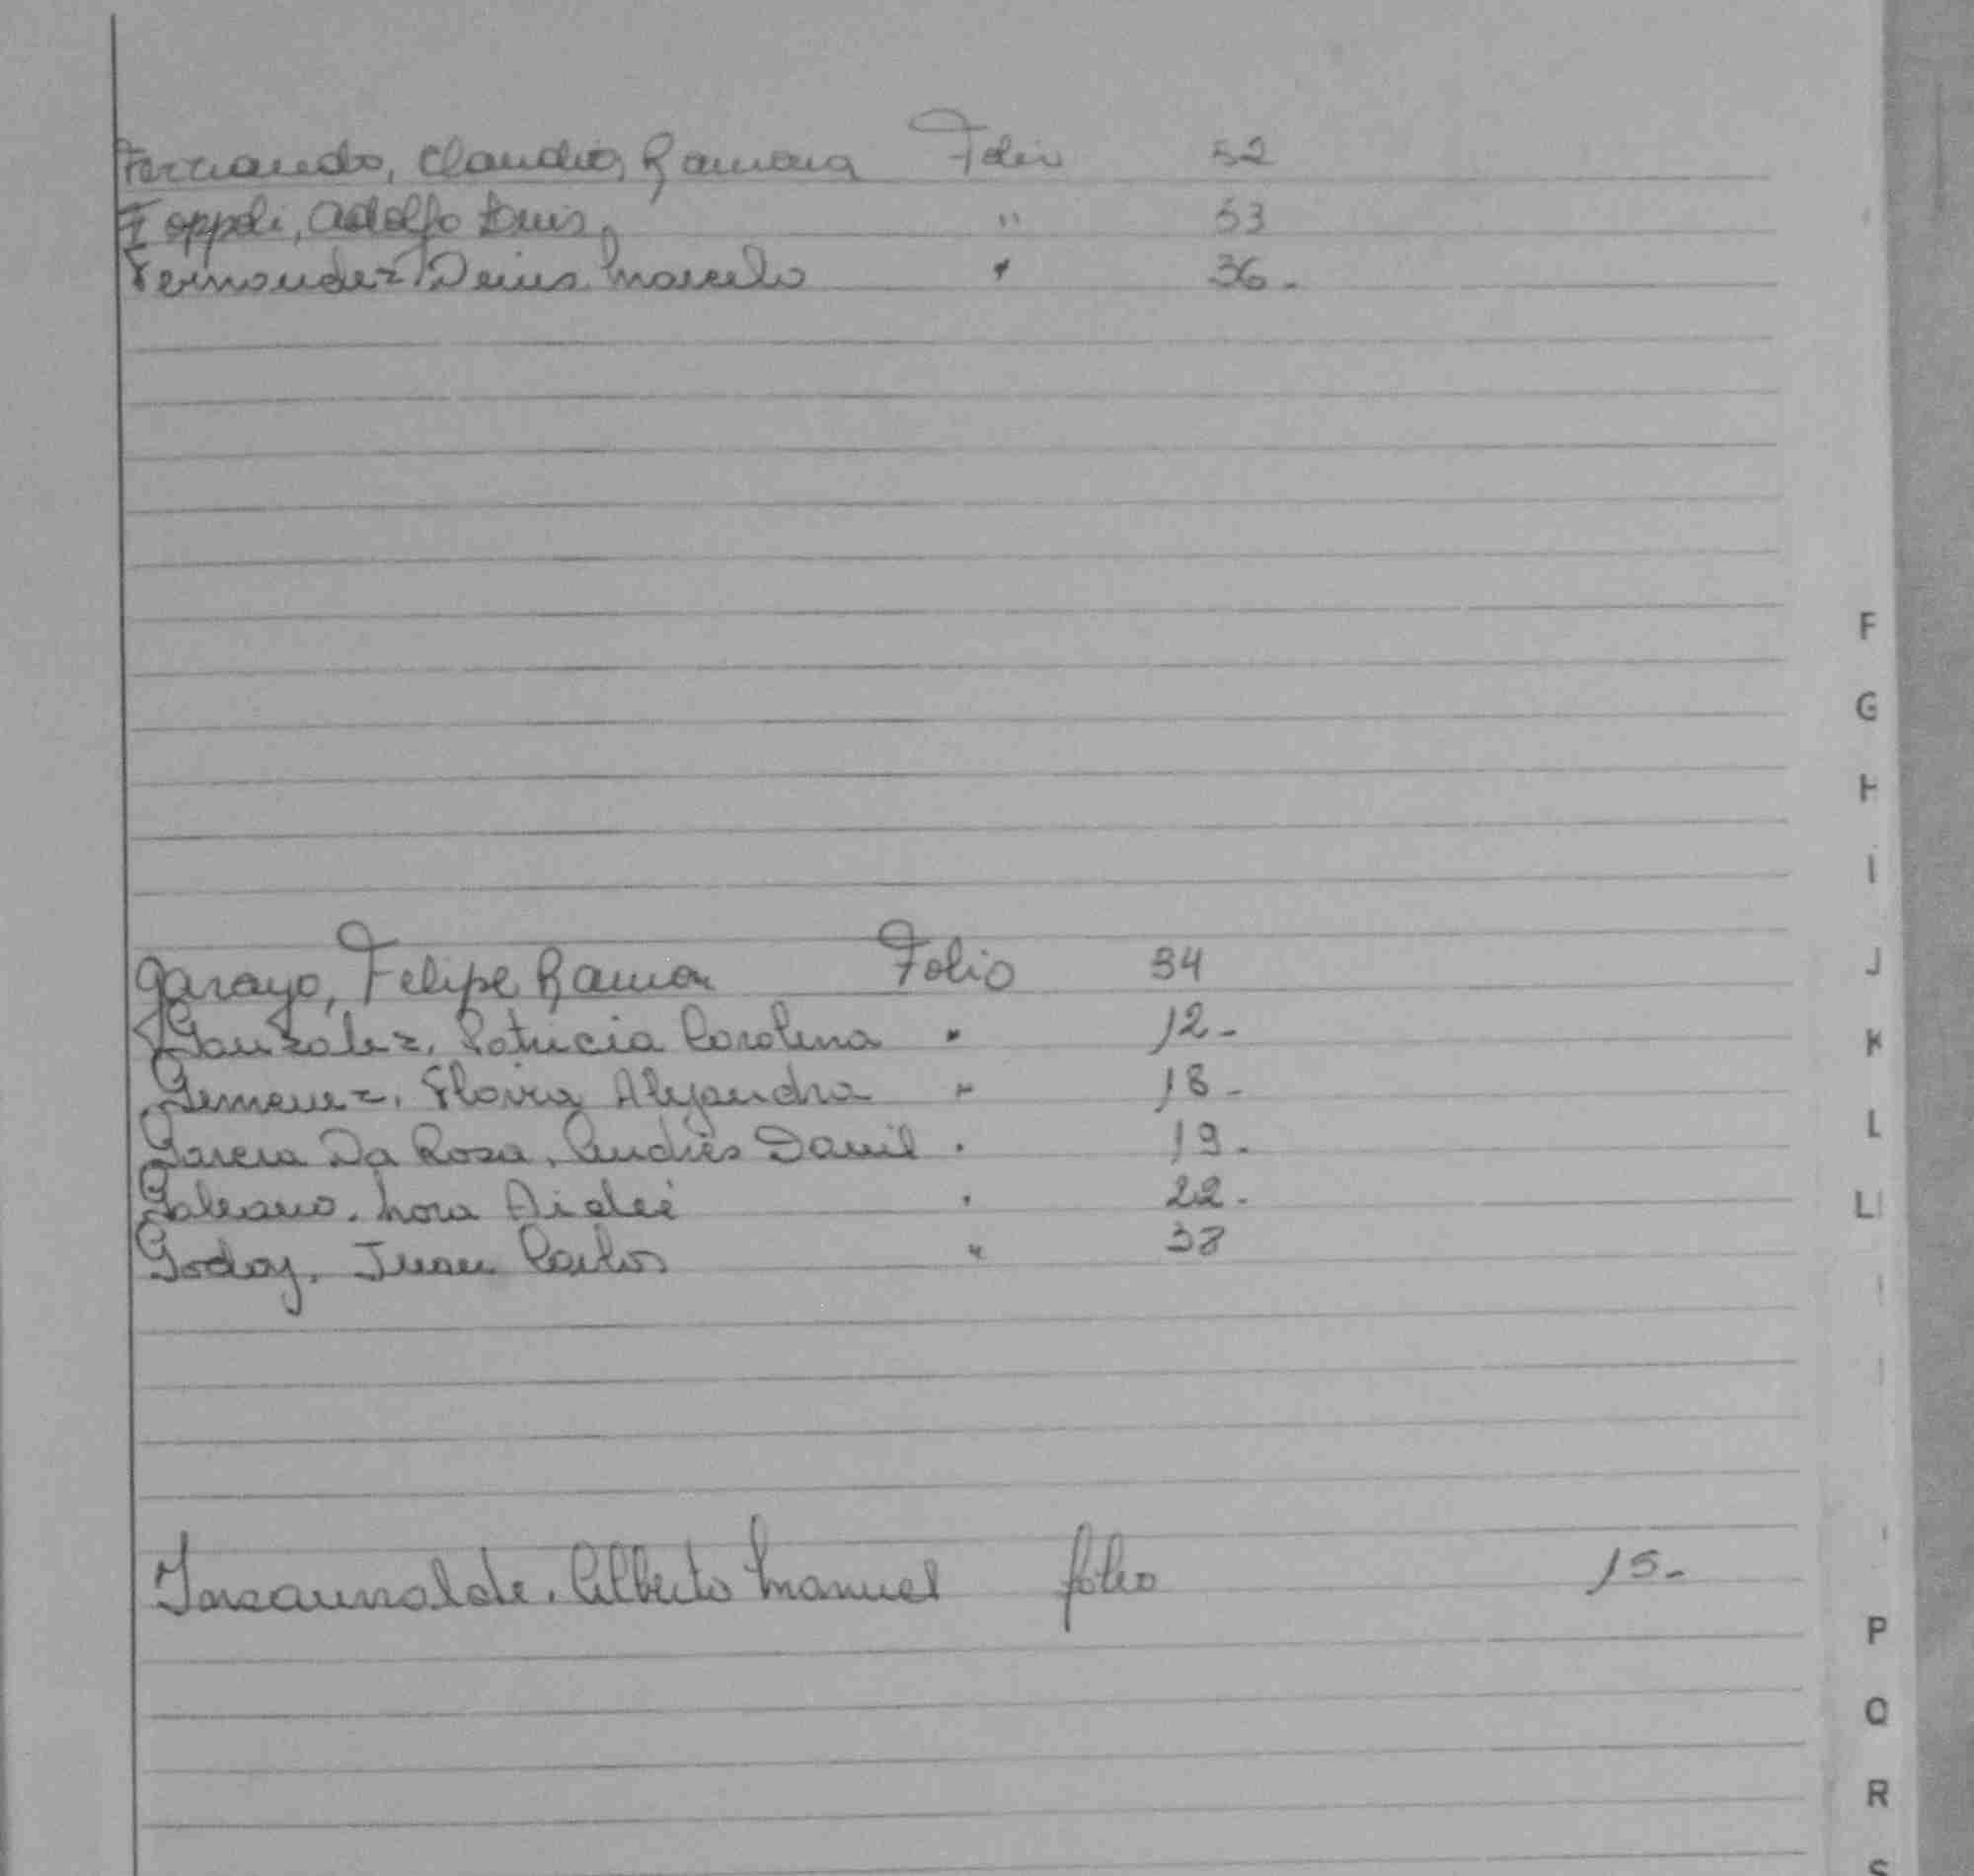 Fernando, Claudio, Ramona Folio 52
Foppoli, Adolfo Luis, " 53
Fernandez Denis Marcelo " 36-
F
G
H
I
Garayo, Felipe Ramon Folio 34
J
Gonzalez, Patricia Carolina " 12-
K
Gemenez, Alejandra " 18-
L
Garcia Da Rosa, Andrés David " 19-
Galeano, Nora Aideé " 22-
LL
Godoy, Juan Carlos " 38
Insaurralde, Alberto Manuel folio 15-
P
Q
R
S